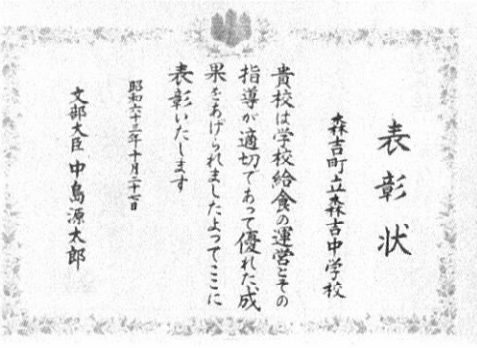 表彰状
森吉町立森吉中学校
貴校は学校給食の運営とその
指導が適切であって優れた成
果をあげられましたよってここに
表彰いたします
昭和六十三年十月二十七日
文部大臣 中島源太郎